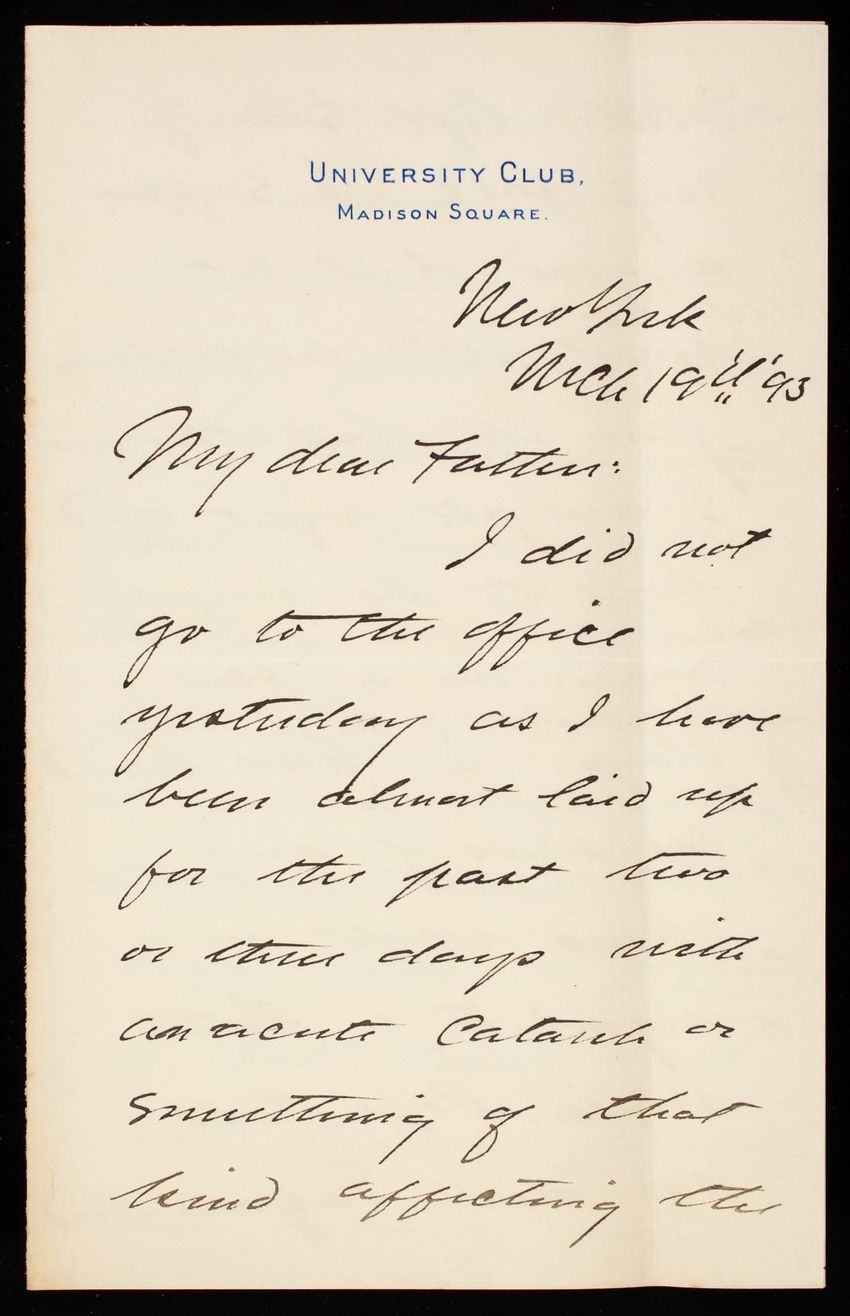 UNIVERSITY CLUB,
MADISON SQUARE.
New York
Mch 19th '93
My dear Father:
I did not
go to the office
yesterday as I have
been almost laid up
for the past two
or three days with
an acute Catarrh or
something of that
kind affecting the